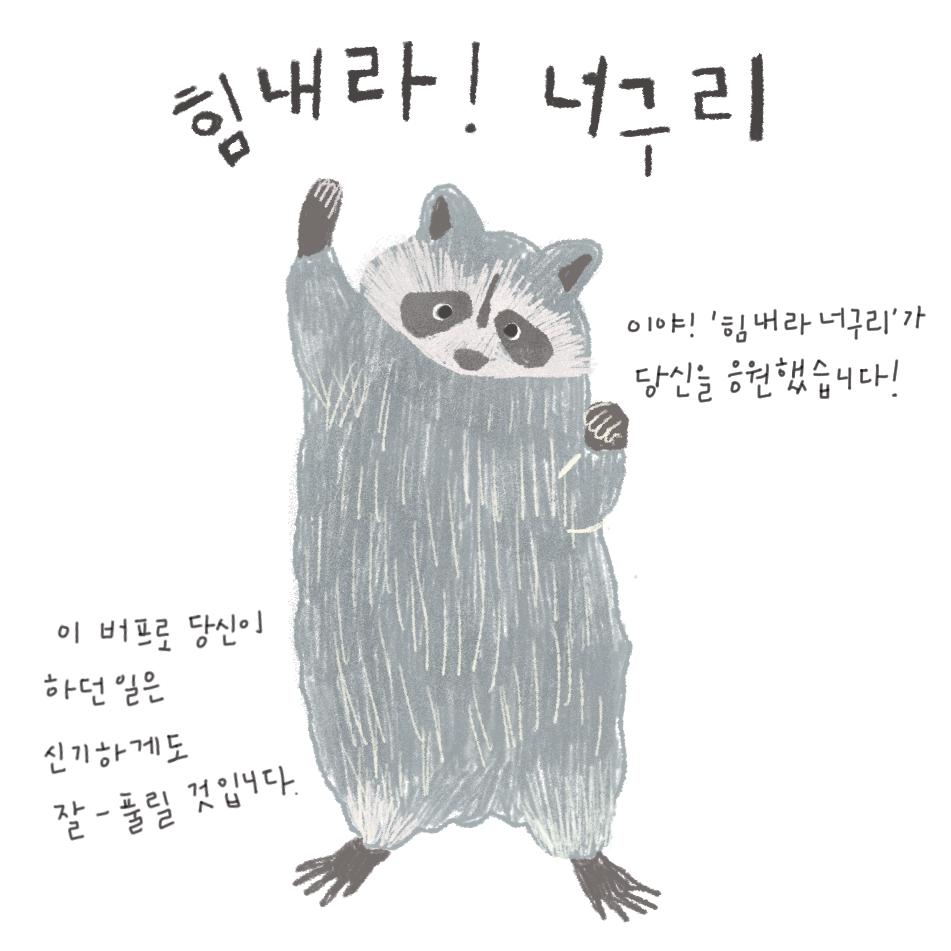 힘내라! 너구리
이야! '힘내라 너구리'가
당신을 응원했습니다!
이 버프로 당신이
하던 일은
신기하게도
잘-풀릴 것입니다.